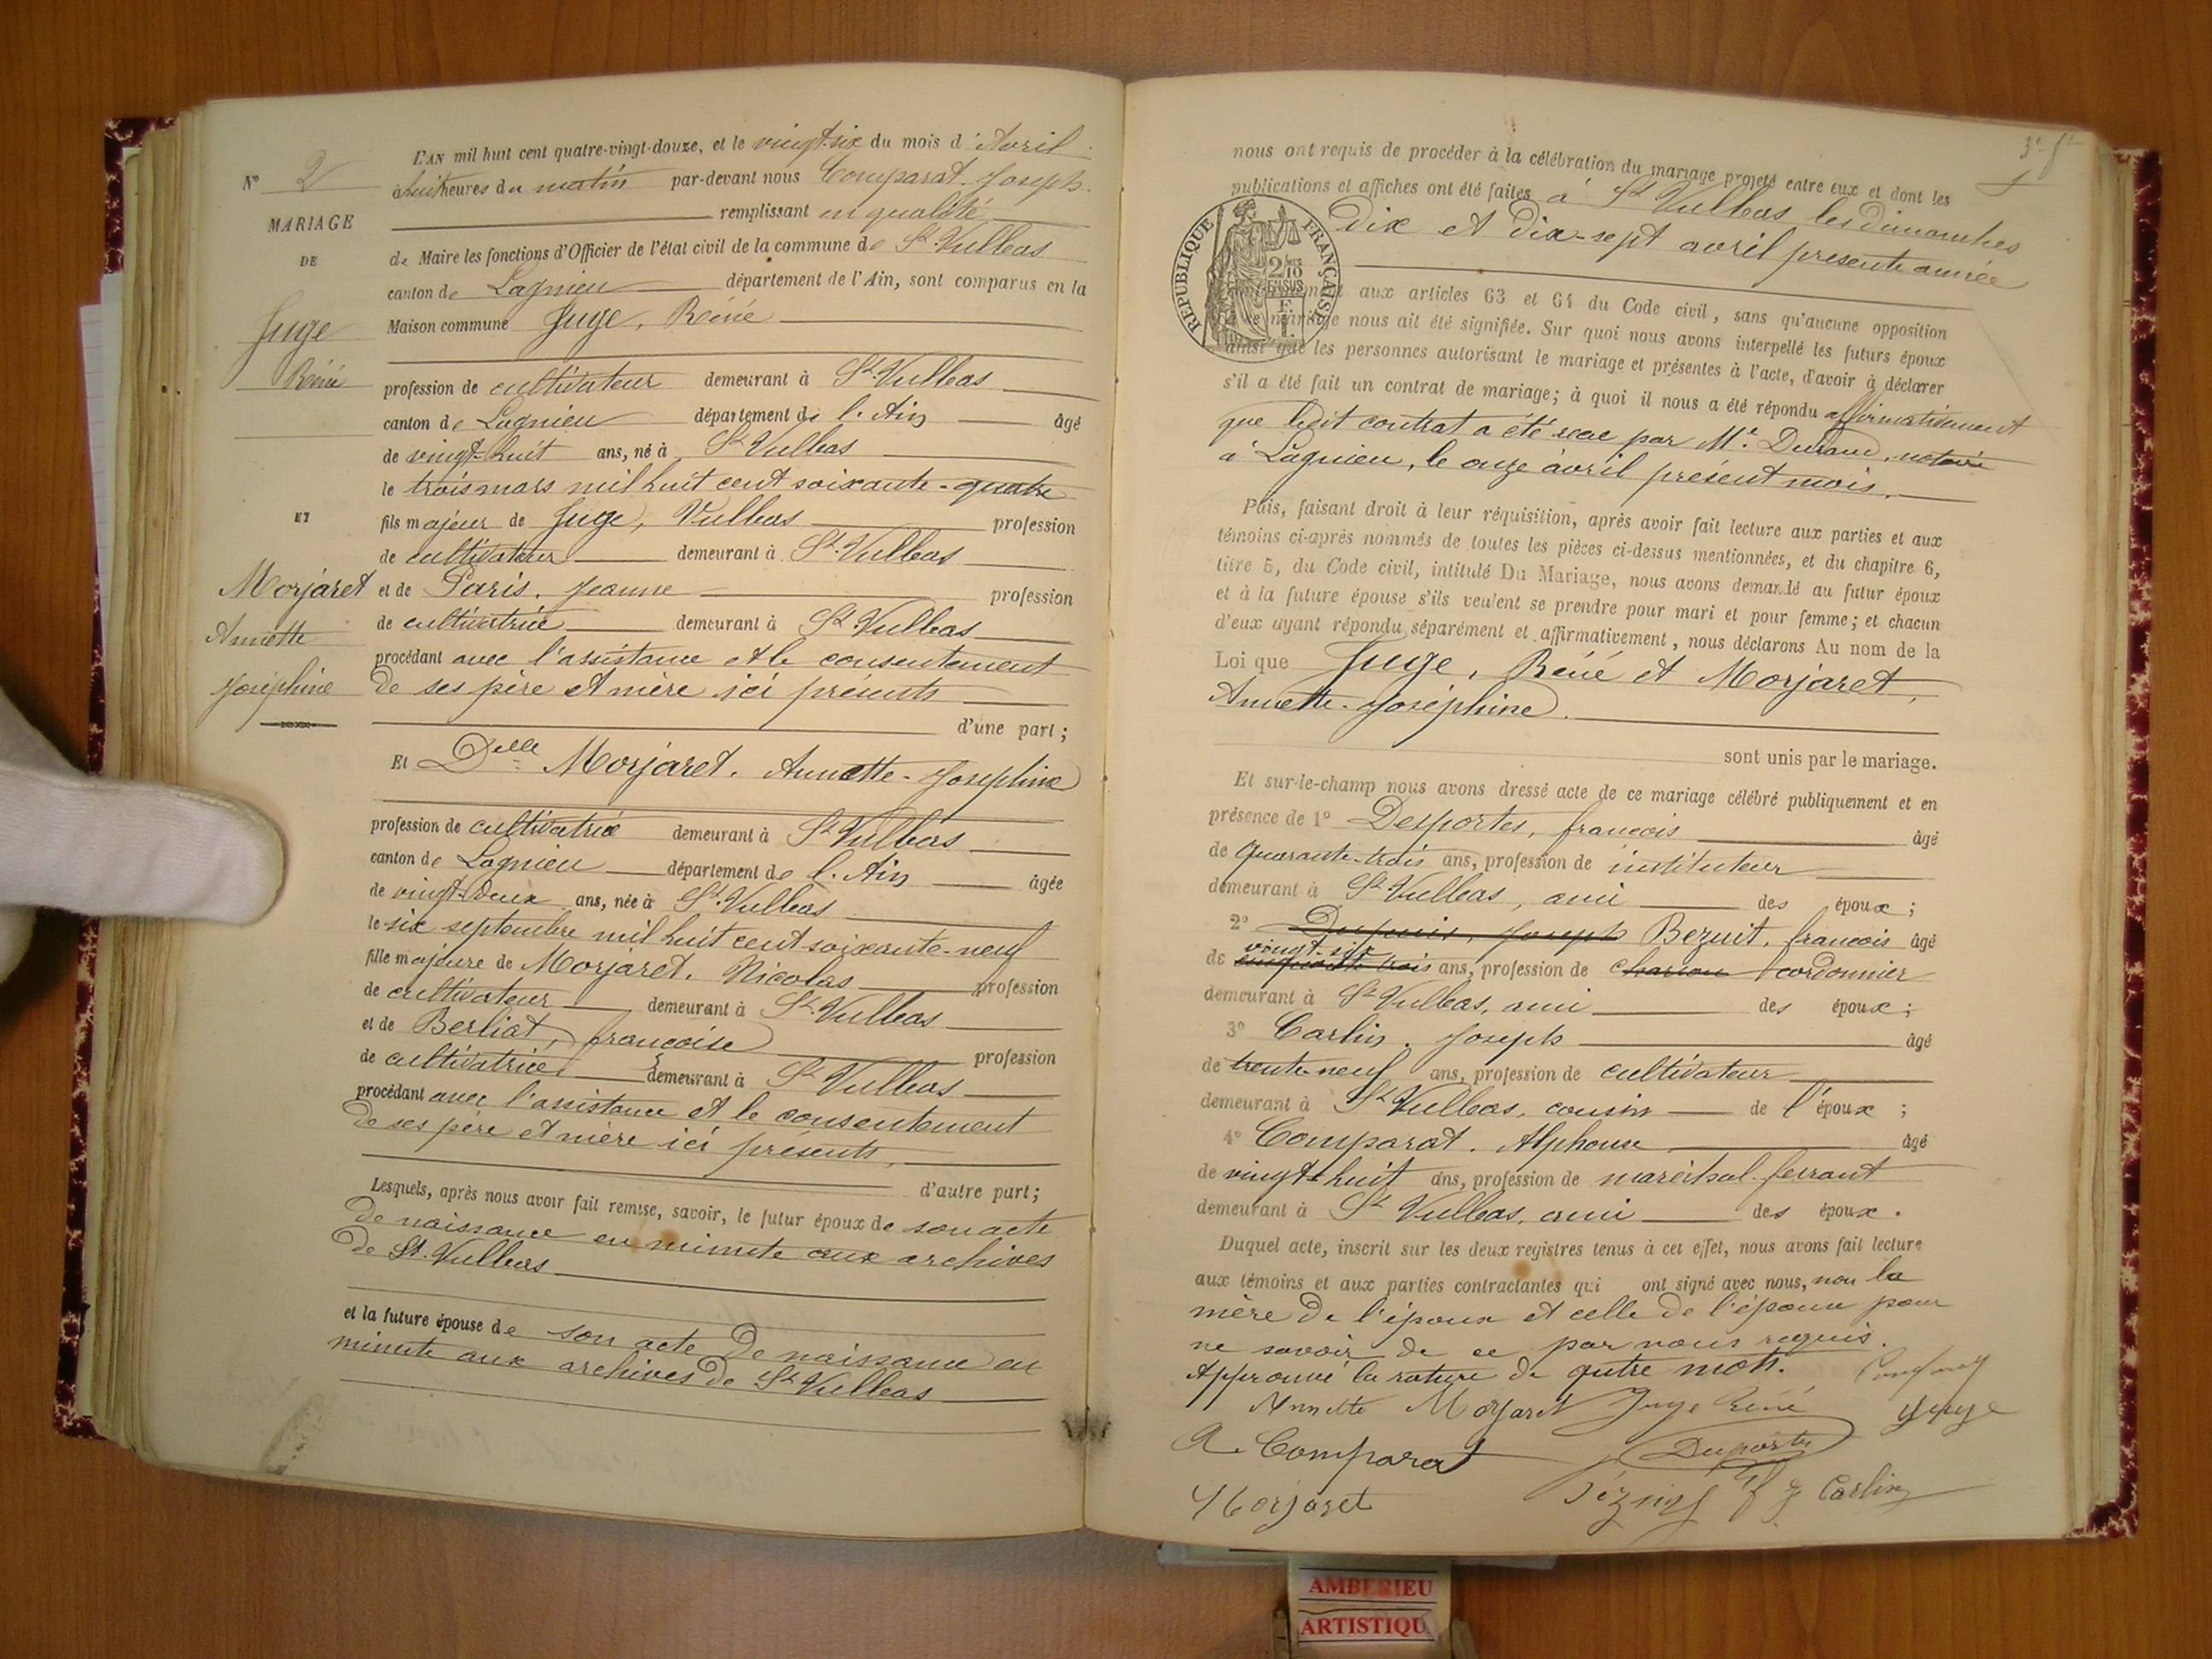 N° 2
MARIAGE
DE
Juge
Réné
ET
Morjaret
Annette
Joséphine
L'AN mil huit cent quatre-vingt-douze, et le vingt-six du mois d'Avril
à huit heures du matin par-devant nous Comparat. Joseph.
remplissant en qualité
de Maire les fonctions d'Officier de l'état civil de la commune de St. Vulbas
canton de Lagnieu département de l'Ain, sont comparus en la
Maison commune Juge, Réné
profession de cultivateur demeurant à St. Vulbas
canton de Lagnieu département de l'Ain âgé
de vingt-huit ans, né à St. Vulbas
le trois mars mil huit cent soixante-quatre
fils majeur de Juge, Vulbas profession
de cultivateur demeurant à St. Vulbas
et de Paris. Jeanne profession
de cultivatrice demeurant à St. Vulbas
procédant avec l'assistance et le consentement
de ses père et mère ici présents
d'une part;
Et Delle Morjaret. Annette-Joséphine
profession de cultivatrice demeurant à St. Vulbas
canton de Lagnieu département de l'Ain âgée
de vingt-deux ans, née à St. Vulbas
le six septembre mil huit cent soixante-neuf
fille majeure de Morjaret. Nicolas profession
de cultivateur demeurant à St. Vulbas
et de Berliat, françoise profession
de cultivatrice demeurant à St. Vulbas
procédant avec l'assistance et le consentement
de ses père et mère ici présents,
d'autre part;
Lesquels, après nous avoir fait remise, savoir, le futur époux de son acte
de naissance en minute aux archives
de St. Vulbas
et la future épouse de son acte de naissance en
minute aux archives de St. Vulbas
3e ft
nous ont requis de procéder à la célébration du mariage projeté entre eux et dont les
publications et affiches ont été faites à St Vulbas les dimanches
dix et dix-sept avril présente année
RÉPUBLIQUE FRANÇAISE
2/10
EN SUS
aux articles 63 et 64 du Code civil, sans qu'aucune opposition
à ce mariage nous ait été signifiée. Sur quoi nous avons interpellé les futurs époux
ainsi que les personnes autorisant le mariage et présentes à l'acte, d'avoir à déclarer
s'il a été fait un contrat de mariage; à quoi il nous a été répondu affirmativement
que ledit contrat a été reçu par Me. Durand, notaire
à Lagnieu, le onze avril présent mois.
Puis, faisant droit à leur réquisition, après avoir fait lecture aux parties et aux
témoins ci-après nommés de toutes les pièces ci-dessus mentionnées, et du chapitre 6,
titre 5, du Code civil, intitulé Du Mariage, nous avons demandé au futur époux
et à la future épouse s'ils veulent se prendre pour mari et pour femme; et chacun
d'eux ayant répondu séparément et affirmativement, nous déclarons Au nom de la
Loi que Juge, Réné et Morjaret,
Annette-Joséphine.
sont unis par le mariage.
Et sur-le-champ nous avons dressé acte de ce mariage célébré publiquement et en
présence de 1° Desportes, françois âgé
de quarante-trois ans, profession de instituteur
demeurant à St. Vulbas, ami des époux;
2° Dupuis, Joseph Bezuit, françois âgé
vingt-six
de cinquante-trois ans, profession de charron cordonnier
demeurant à St. Vulbas, ami des époux;
3° Carlin. Joseph âgé
de trente-neuf ans, profession de cultivateur
demeurant à St. Vulbas, cousin de l'époux;
4° Comparat. Alphonse âgé
de vingt-huit ans, profession de maréchal-ferrant
demeurant à St. Vulbas, ami des époux.
Duquel acte, inscrit sur les deux registres tenus à cet effet, nous avons fait lecture
aux témoins et aux parties contractantes qui ont signé avec nous, non la
mère de l'époux et celle de l'épouse pour
ne savoir de ce par nous requis.
Approuvé la rature de qutre mots.
Annette Morjaret Juge Réné Juge
A. Comparat
Morjaret J Carlin
AMBERIEU
ARTISTIQU